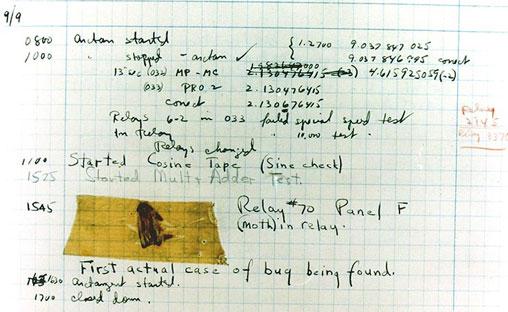 9/9
0800 antan started
1000 " stopped - antan ✓ { 1.2700 9.037 847 025
9.037 846 995 correct
13"uc (032) MP - MC 2.130476415 (-3) 4.615925059(-2)
(033) PRO 2 2.130476415
correct 2.130676415
Relays 6-2 in 033 failed special speed test
In Relay " 10,000 test .
Relays changed
Relay
2145
Relay 3370
1100 Started Cosine Tape (Sine check)
1525 Started Mult+ Adder Test.
1545 Relay #70 Panel F
(moth) in relay.
First actual case of bug being found.
1630 antangent started.
1700 closed down .